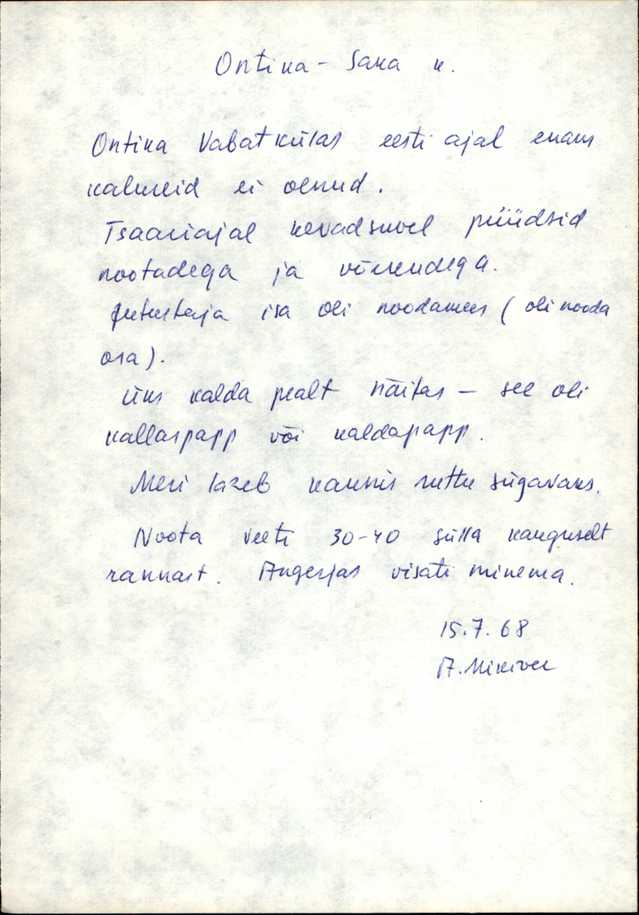 Ontika – Saka k.
Ontika Vabatkülas eesti ajal enam
kalureid ei olnud.
Tsaariajal kevadsuvel püüdsid
nootadega ja võrkudega.
Jutustaja isa oli noodamees (oli nooda
osa).
Üks kalda pealt näitas – see oli
kallaspapp või kaldapapp.
Meri läzeb kaunis ruttu sügavaks.
Noota veeti 30-40 sülla kauguselt
rannast. Angerjas visati minema.
15.7.68
A.